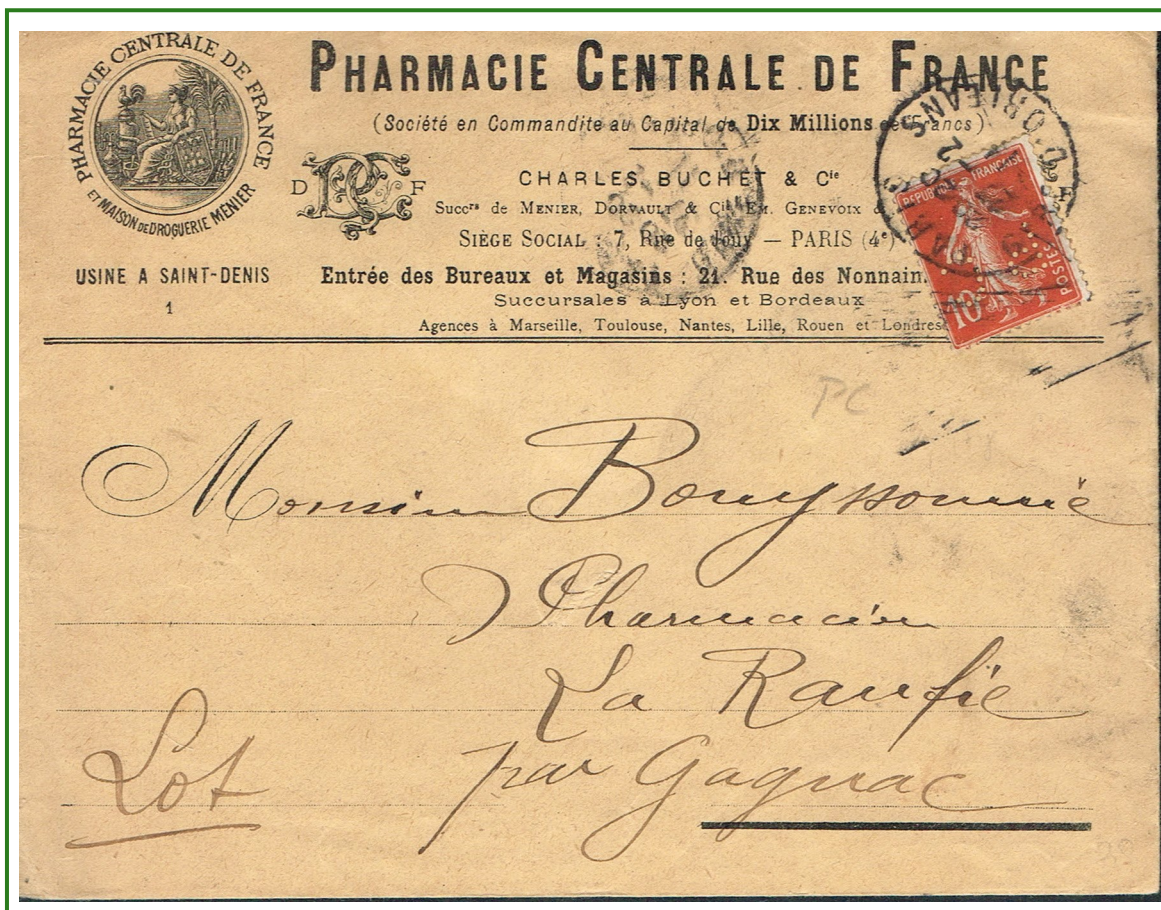 PHARMACIE CENTRALE DE FRANCE
ET MAISON DE DROGUERIE MENIER
USINE A SAINT-DENIS
1
PHARMACIE CENTRALE DE FRANCE
(Société en Commandite au Capital de Dix Millions de Francs)
D PC F
CHARLES BUCHET & Cie
Succrs de MENIER, DORVAULT & Cie, EM. GENEVOIX &
SIÈGE SOCIAL : 7, Rue de Jouy — PARIS (4e)
Entrée des Bureaux et Magasins : 21. Rue des Nonnain
Succursales à Lyon et Bordeaux
Agences à Marseille, Toulouse, Nantes, Lille, Rouen et Londres
REPUBLIQUE FRANÇAISE
POSTES
10c
PARIS
PC
Monsieur Bouyssonnie
Pharmacien
La Raufie
par Gagnac
Lot